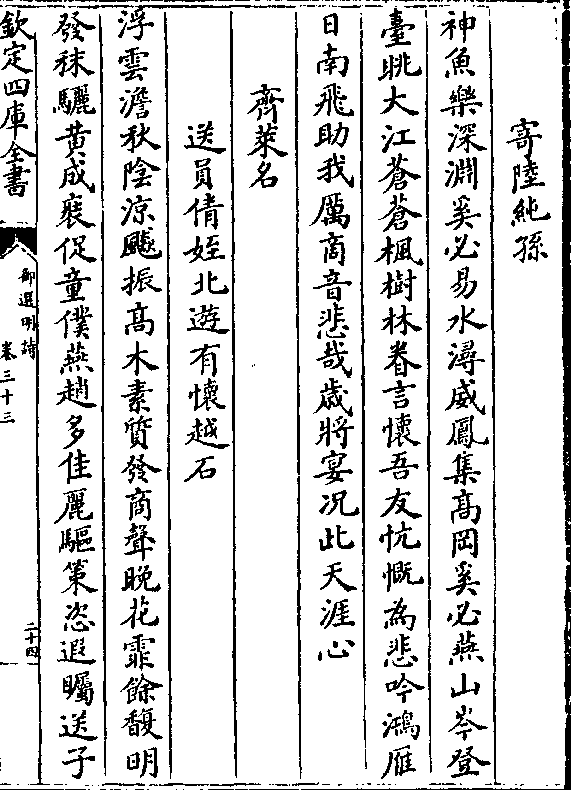 寄陸純孫
神魚樂深淵奚必易水潯威鳳集髙岡奚必燕山岑登
臺眺大江蒼蒼楓樹林眷言懷吾友忼慨為悲吟鴻雁
日南飛助我厲商音悲哉歳將宴况此天涯心
齊萊名
送員倩姪北遊有懷越石
浮雲澹秋陰涼飈振髙木素質發商聲晚花霏餘馥明
發秣驪黄成裝促童僕燕趙多佳麗驅策恣遐矚送子
欽定四庫全書
御選明詩
卷三十三
二十四